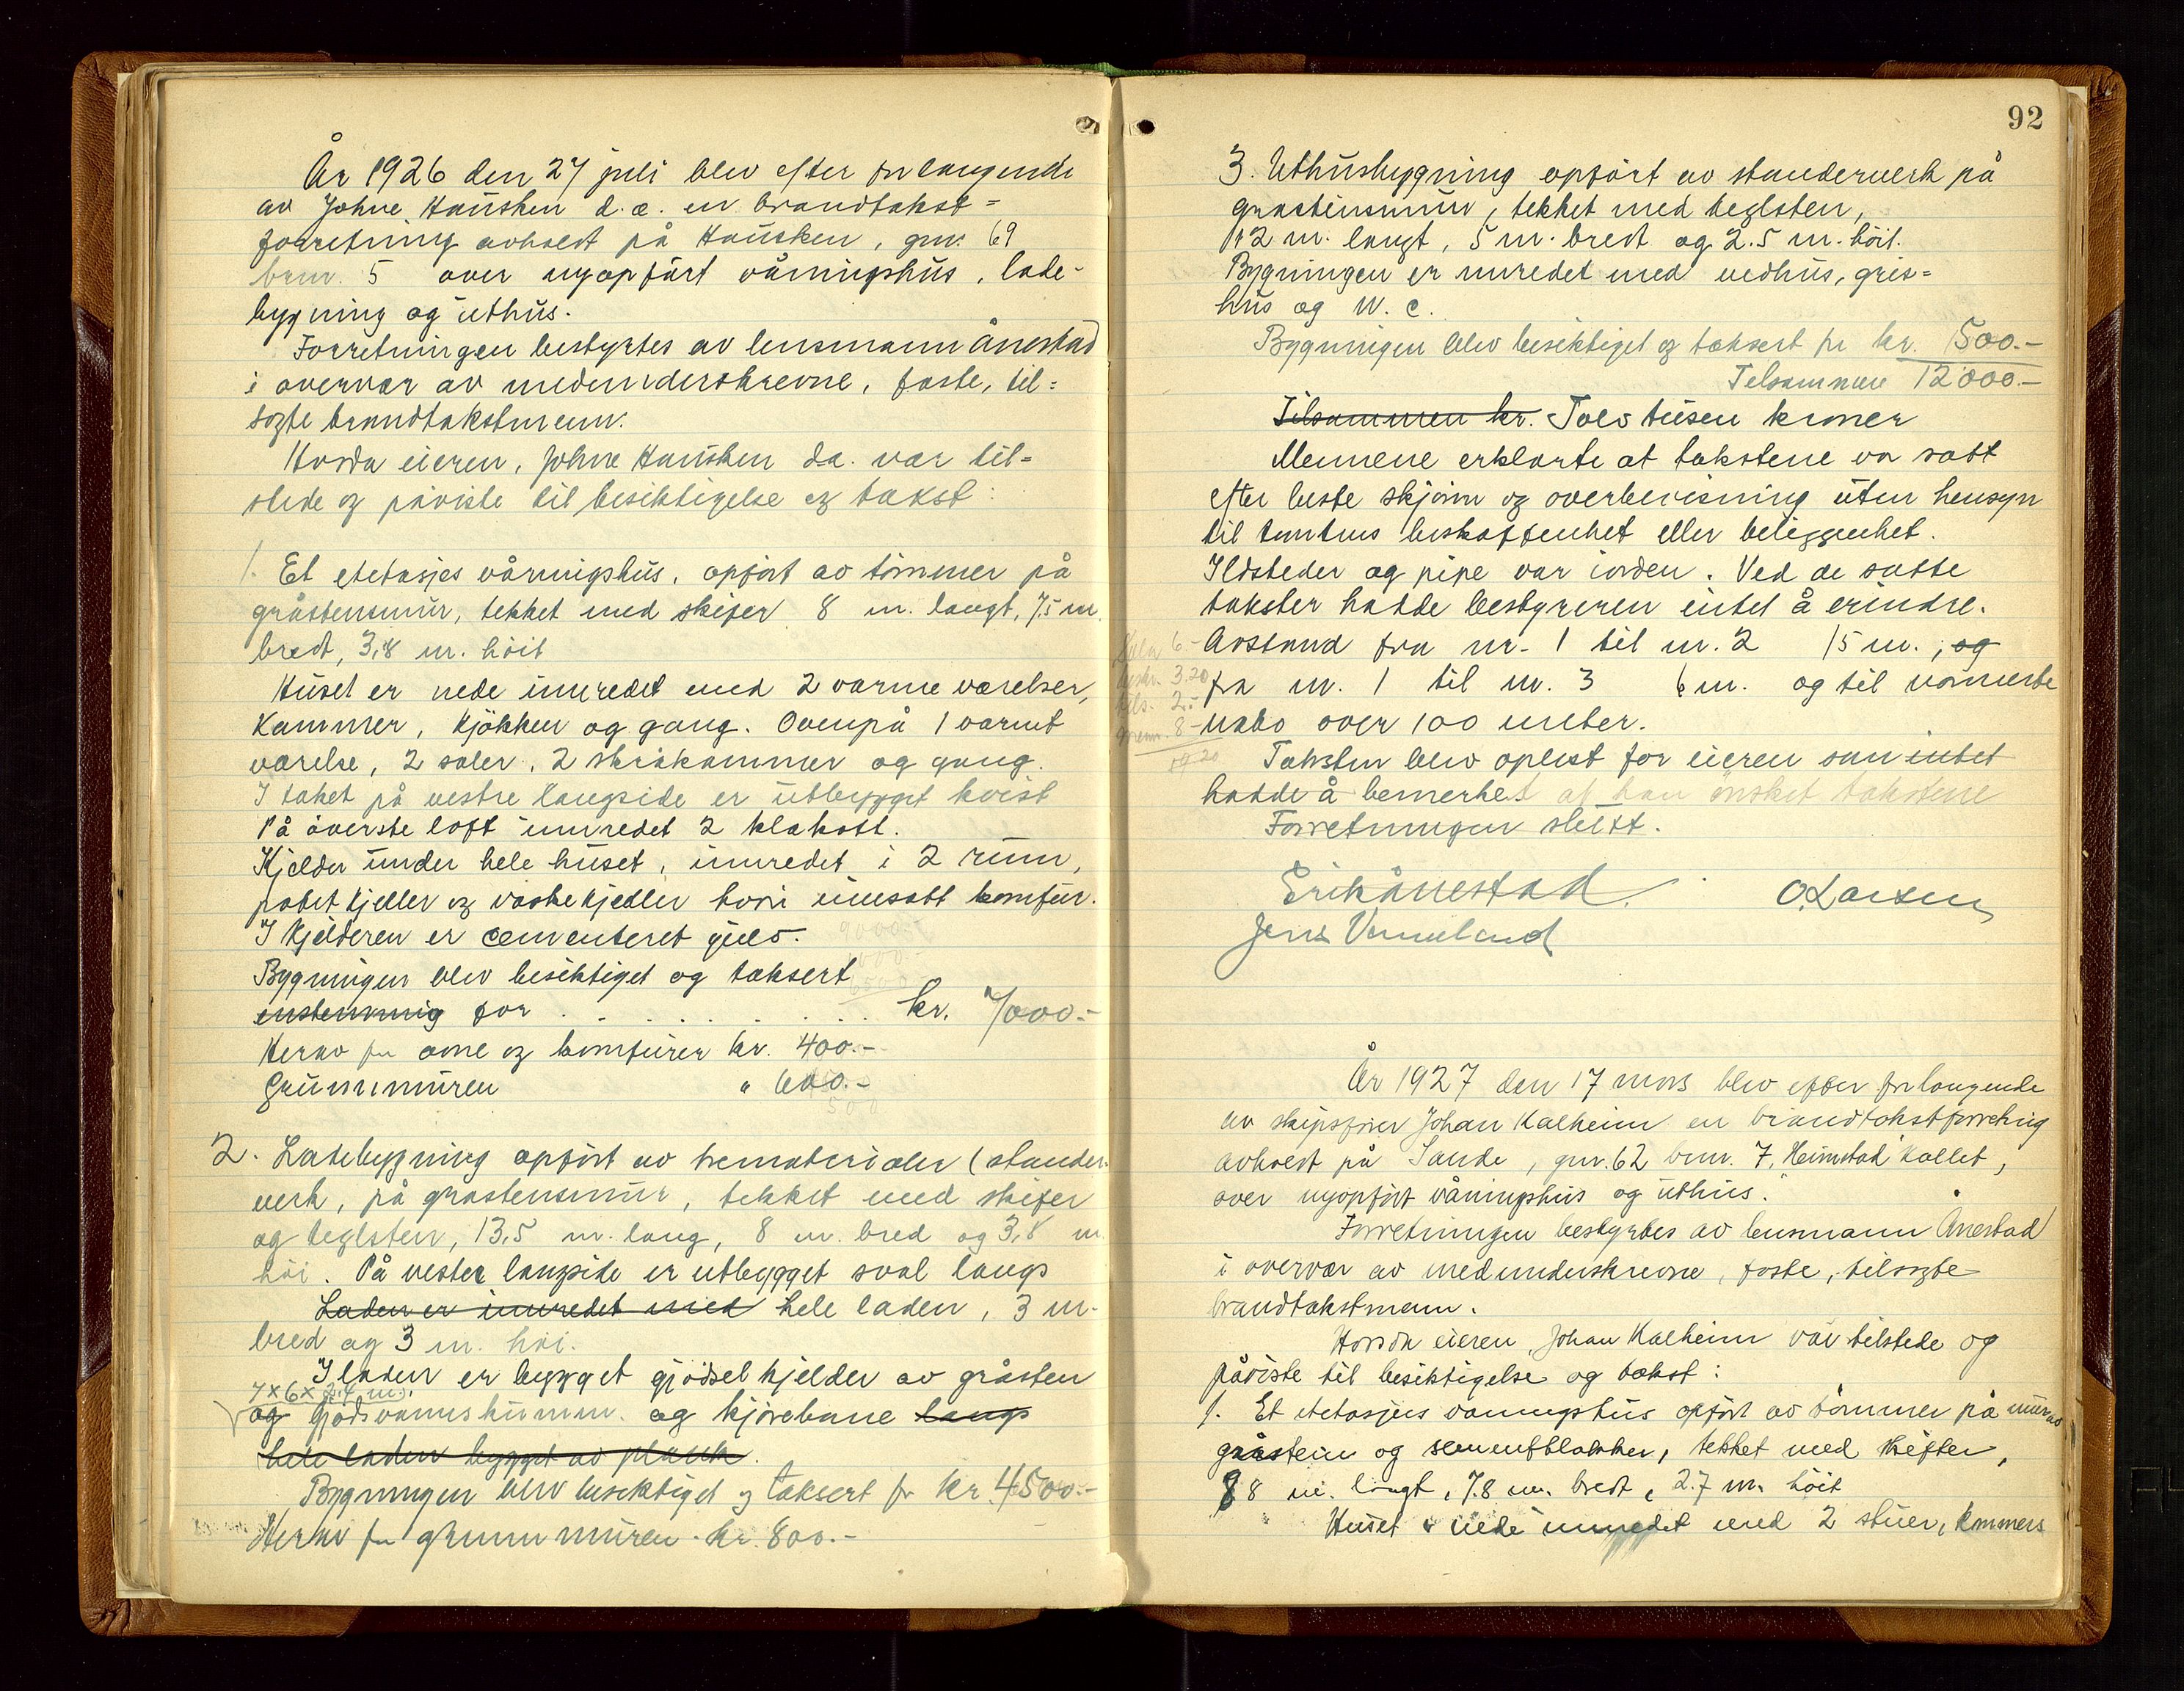 År 1926 den 27 juli blev efter forlangende
av Johne Hausken d. æ. en brandtakst=
forretning avholdt på Hausken, gnr. 69
brnr. 5 over nyopført våningshus, lade-
bygning og uthus.
Forretningen bestyrtes av lensmann Ånestad
i overvær av medunderskrevne, faste, til=
sagte brandtakstmenn.
Hvorda eieren, Johne Hausken da. var til=
stede og påviste til besiktigelse og takst:
1. Et etetasjes våningshus, opført av tømmer på
gråstensmur, tekket med skifer 8 m. langt, 7.5 m.
bredt, 3,8 m. höit
Huset er nede innredet med 2 varme værelser,
Kammer, Kjökken og gang. Ovenpå 1 varmt
værelse, 2 saler, 2 skråkammer og gang.
I taket på vestre langside er utbygget kvist
På överste loft innredet 2 klækott.
Kjelder under hele huset, innredet i 2 rum,
potetkjeller og vaskekjedler hvori innsatt komfur.
I Kjelderen er cementeret gulv.
Bygningen blev besiktiget og taksert
enstemmig for . . . . . . . kr. 7000.-
Herav for ovne og komfurer kr. 400.-
Grunnmuren " 600.-
2. Ladebygning opført av trematerialer (stander-
verk, på gråstensmur, tekket med skifer
og teglsten, 13,5 m. lang, 8 m. bred og 3,8 m
höi. På vestre langside er utbygget sval langs
Laden er innredet med hele laden, 3 m.
bred og 3 m. höi.
I laden er bygget gjödselkjelder av gråsten
7 x 6 x 2.4 m.
og Gjödsvannskumm. og kjörebane langs
hele laden bygget av plank.
Bygningen blev besiktiget og taksert for kr. 4500.-
Herav for grunnmuren kr. 800.-
92
3. Uthusbygning opfört av standerverk på
grastensmur, tekket med teglsten,
12 m. langt, 5 m. bredt og 2.5 m. höit.
Bygningen er innredet med vedhus, gris=
hus og W. C.
Bygningen blev besiktiget og taksert for kr. 500.-
Tilsammen 12000.-
Tilsammen kr. Tolv tusen kroner
Mennene erklærte at takstene var satt
efter beste skjönn og overbevisning uten hensyn
til tomtens beskaffenhet eller beliggenhet.
Ildsteder og pipe var iorden. Ved de satte
takster hadde bestyreren intet å erindre.
Avstand fra nr. 1 til nr. 2 15 m., og
fra nr. 1 til nr. 3 6 m. og til nærmeste
nabo over 100 meter.
6-
3.20
2.-
8-
19 20
Taksten blev oplest for eieren som intet
hadde å bemerke at han ønsket takstene
Forretningen sluttt.
Erik Ånestad O. Larsen
Jens Vanneland
År 1927 den 17 mars blev efter forlangende
av skipsfører Johan Kalheim en brandtakstforretnig
avholdt på Sande, gnr. 62 brnr. 7, "Heimstad" kallet,
over nyopført våningshus og uthus.
Forretningen bestyrtes av lensmann Ånestad
i overvær av medunderskrevne, faste, tilsagte
brandtakstmenn.
Hvorda eieren, Johan Kalheim var tilstede og
påviste til besiktigelse og takst:
1. Et etetasjes vaningshus opført av tömmer på mur av
gråstein og sementblokker, tekket med skifter,
8 8 m. langt, 7.8 m. bredt, 2.7 m. höit
Huset er nede innredet med 2 stuer, kammers